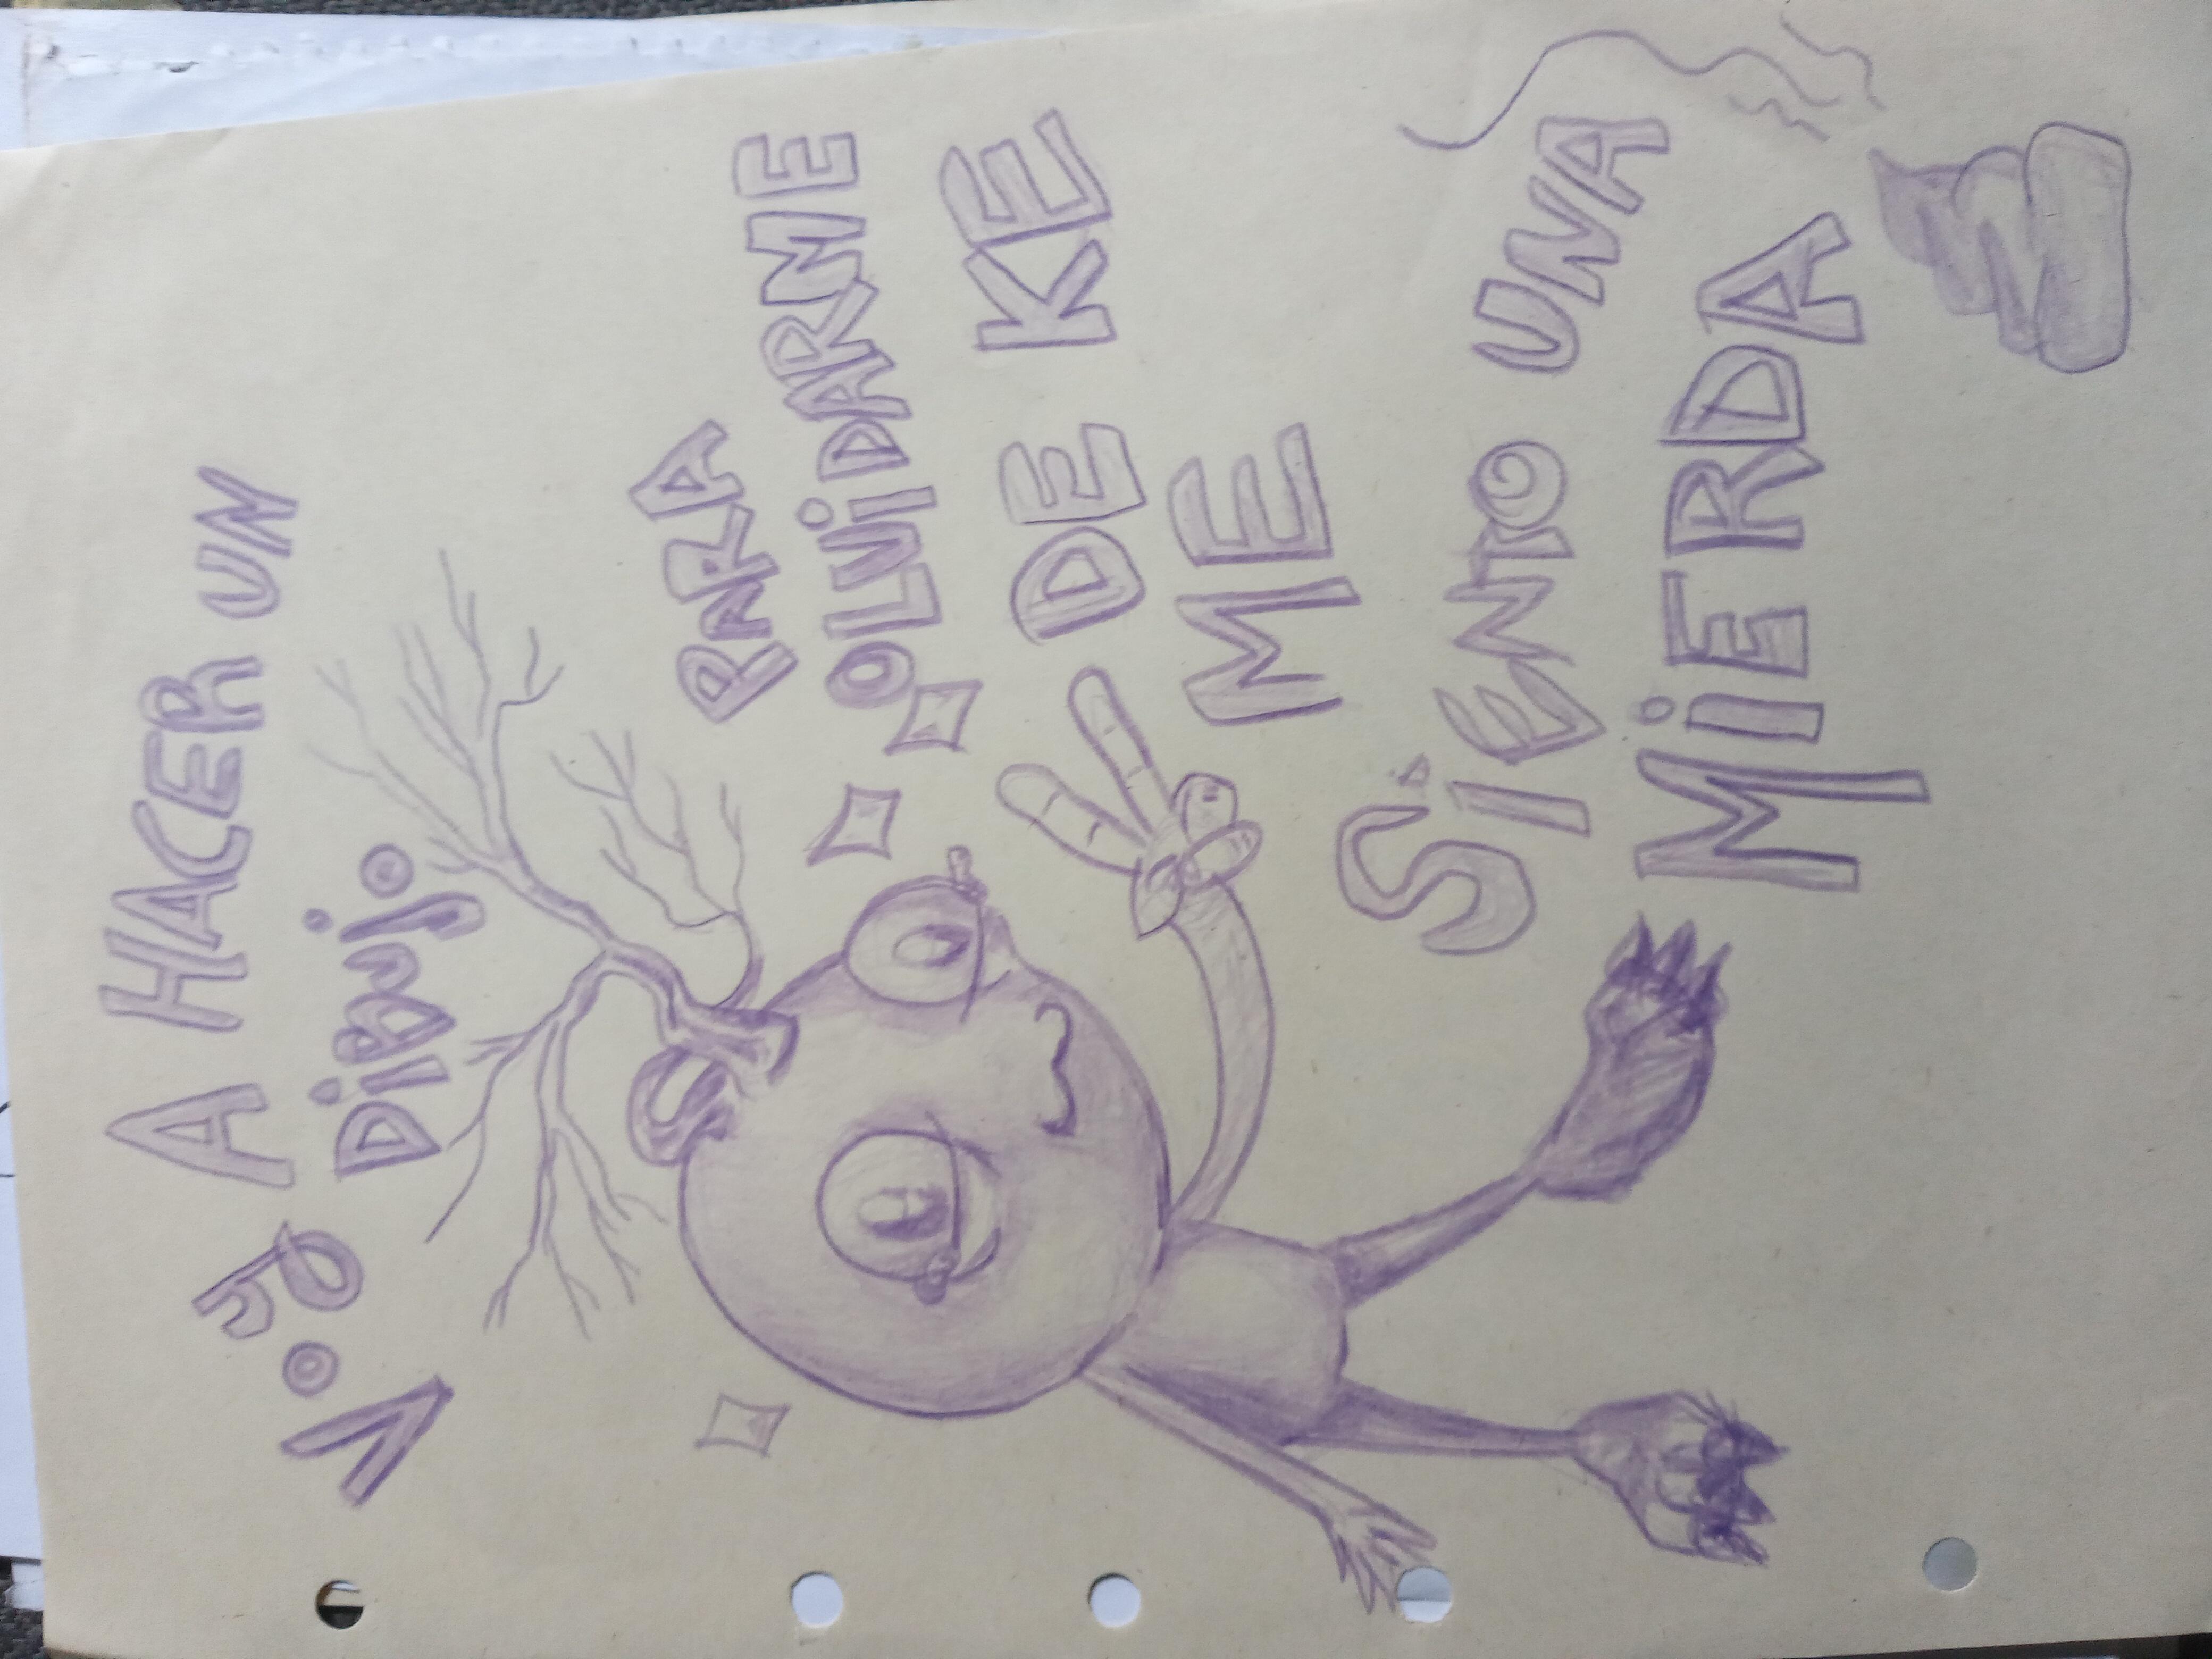 Voy A HACER UN
DiBUJo
PARA
OLViDARME
DE KE
ME
SiENTO UNA
MiERDA